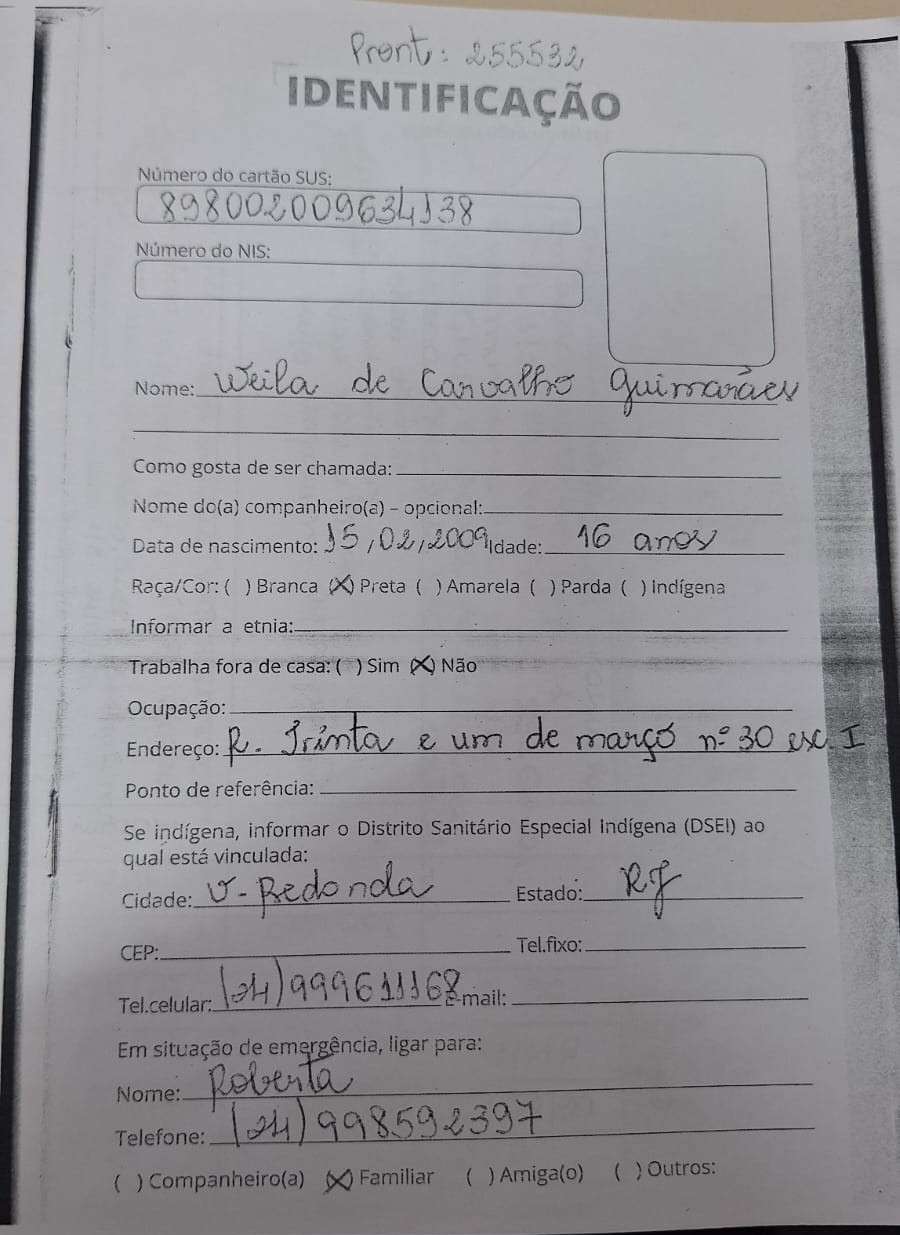 Pront: 255532
IDENTIFICAÇÃO
Número do cartão SUS:
898002009634138
Número do NIS:
Nome: Weila de Carvalho Guimarães
Como gosta de ser chamada:
Nome do(a) companheiro(a) – opcional:
Data de nascimento: 15,02,2009 Idade: 16 anos
Raça/Cor: ( ) Branca (X) Preta ( ) Amarela ( ) Parda ( ) Indígena
Informar a etnia:
Trabalha fora de casa: ( ) Sim (X) Não
Ocupação:
Endereço: R. Trinta e um de março nº 30 esc. I
Ponto de referência:
Se indígena, informar o Distrito Sanitário Especial Indígena (DSEI) ao
qual está vinculada:
Cidade: V-Redonda Estado: RJ
CEP: Tel.fixo:
Tel.celular: (24) 999611168 E-mail:
Em situação de emergência, ligar para:
Nome: Roberta
Telefone: (24) 998592397
( ) Companheiro(a) (X) Familiar ( ) Amiga(o) ( ) Outros: